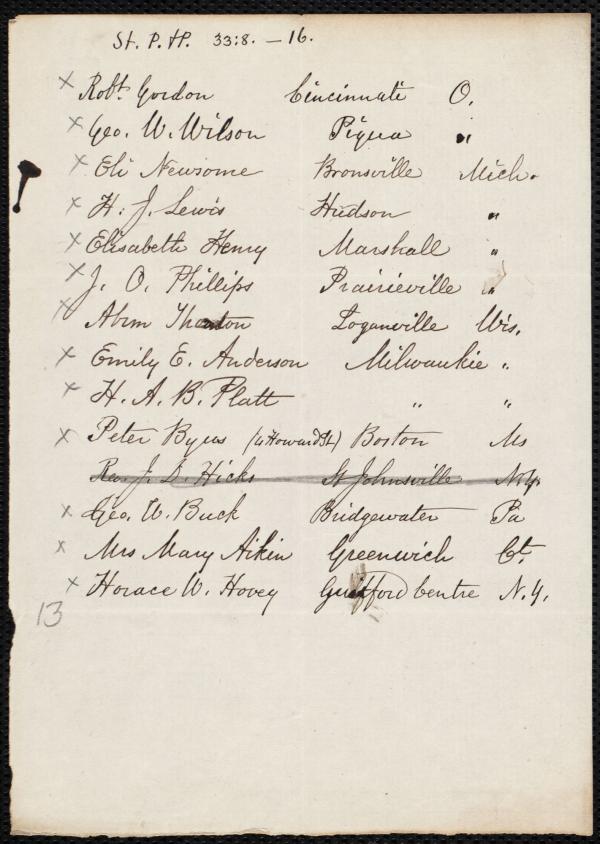 St. P. & P. 33:8. — 16.
x Robt. Gordon Cincinnati O.
x Geo. W. Wilson Piqua "
x Eli Newsome Bronsville Mich.
x H. J. Lewis Hudson "
x Elisabeth Henry Marshall "
x J. O. Phillips Prairieville "
x Abrm Thornton Loganville Wis.
x Emily E. Anderson Milwaukie "
x H. A. B. Platt " "
x Peter Byus (4 Howard St.) Boston Ms
Rev. J. D. Hicks St Johnsville N.Y.
x Geo. W. Buck Bridgewater Pa
x Mrs Mary Aikin Greenwich Ct.
x Horace W. Hovey Guilfford Centre N.Y.
13